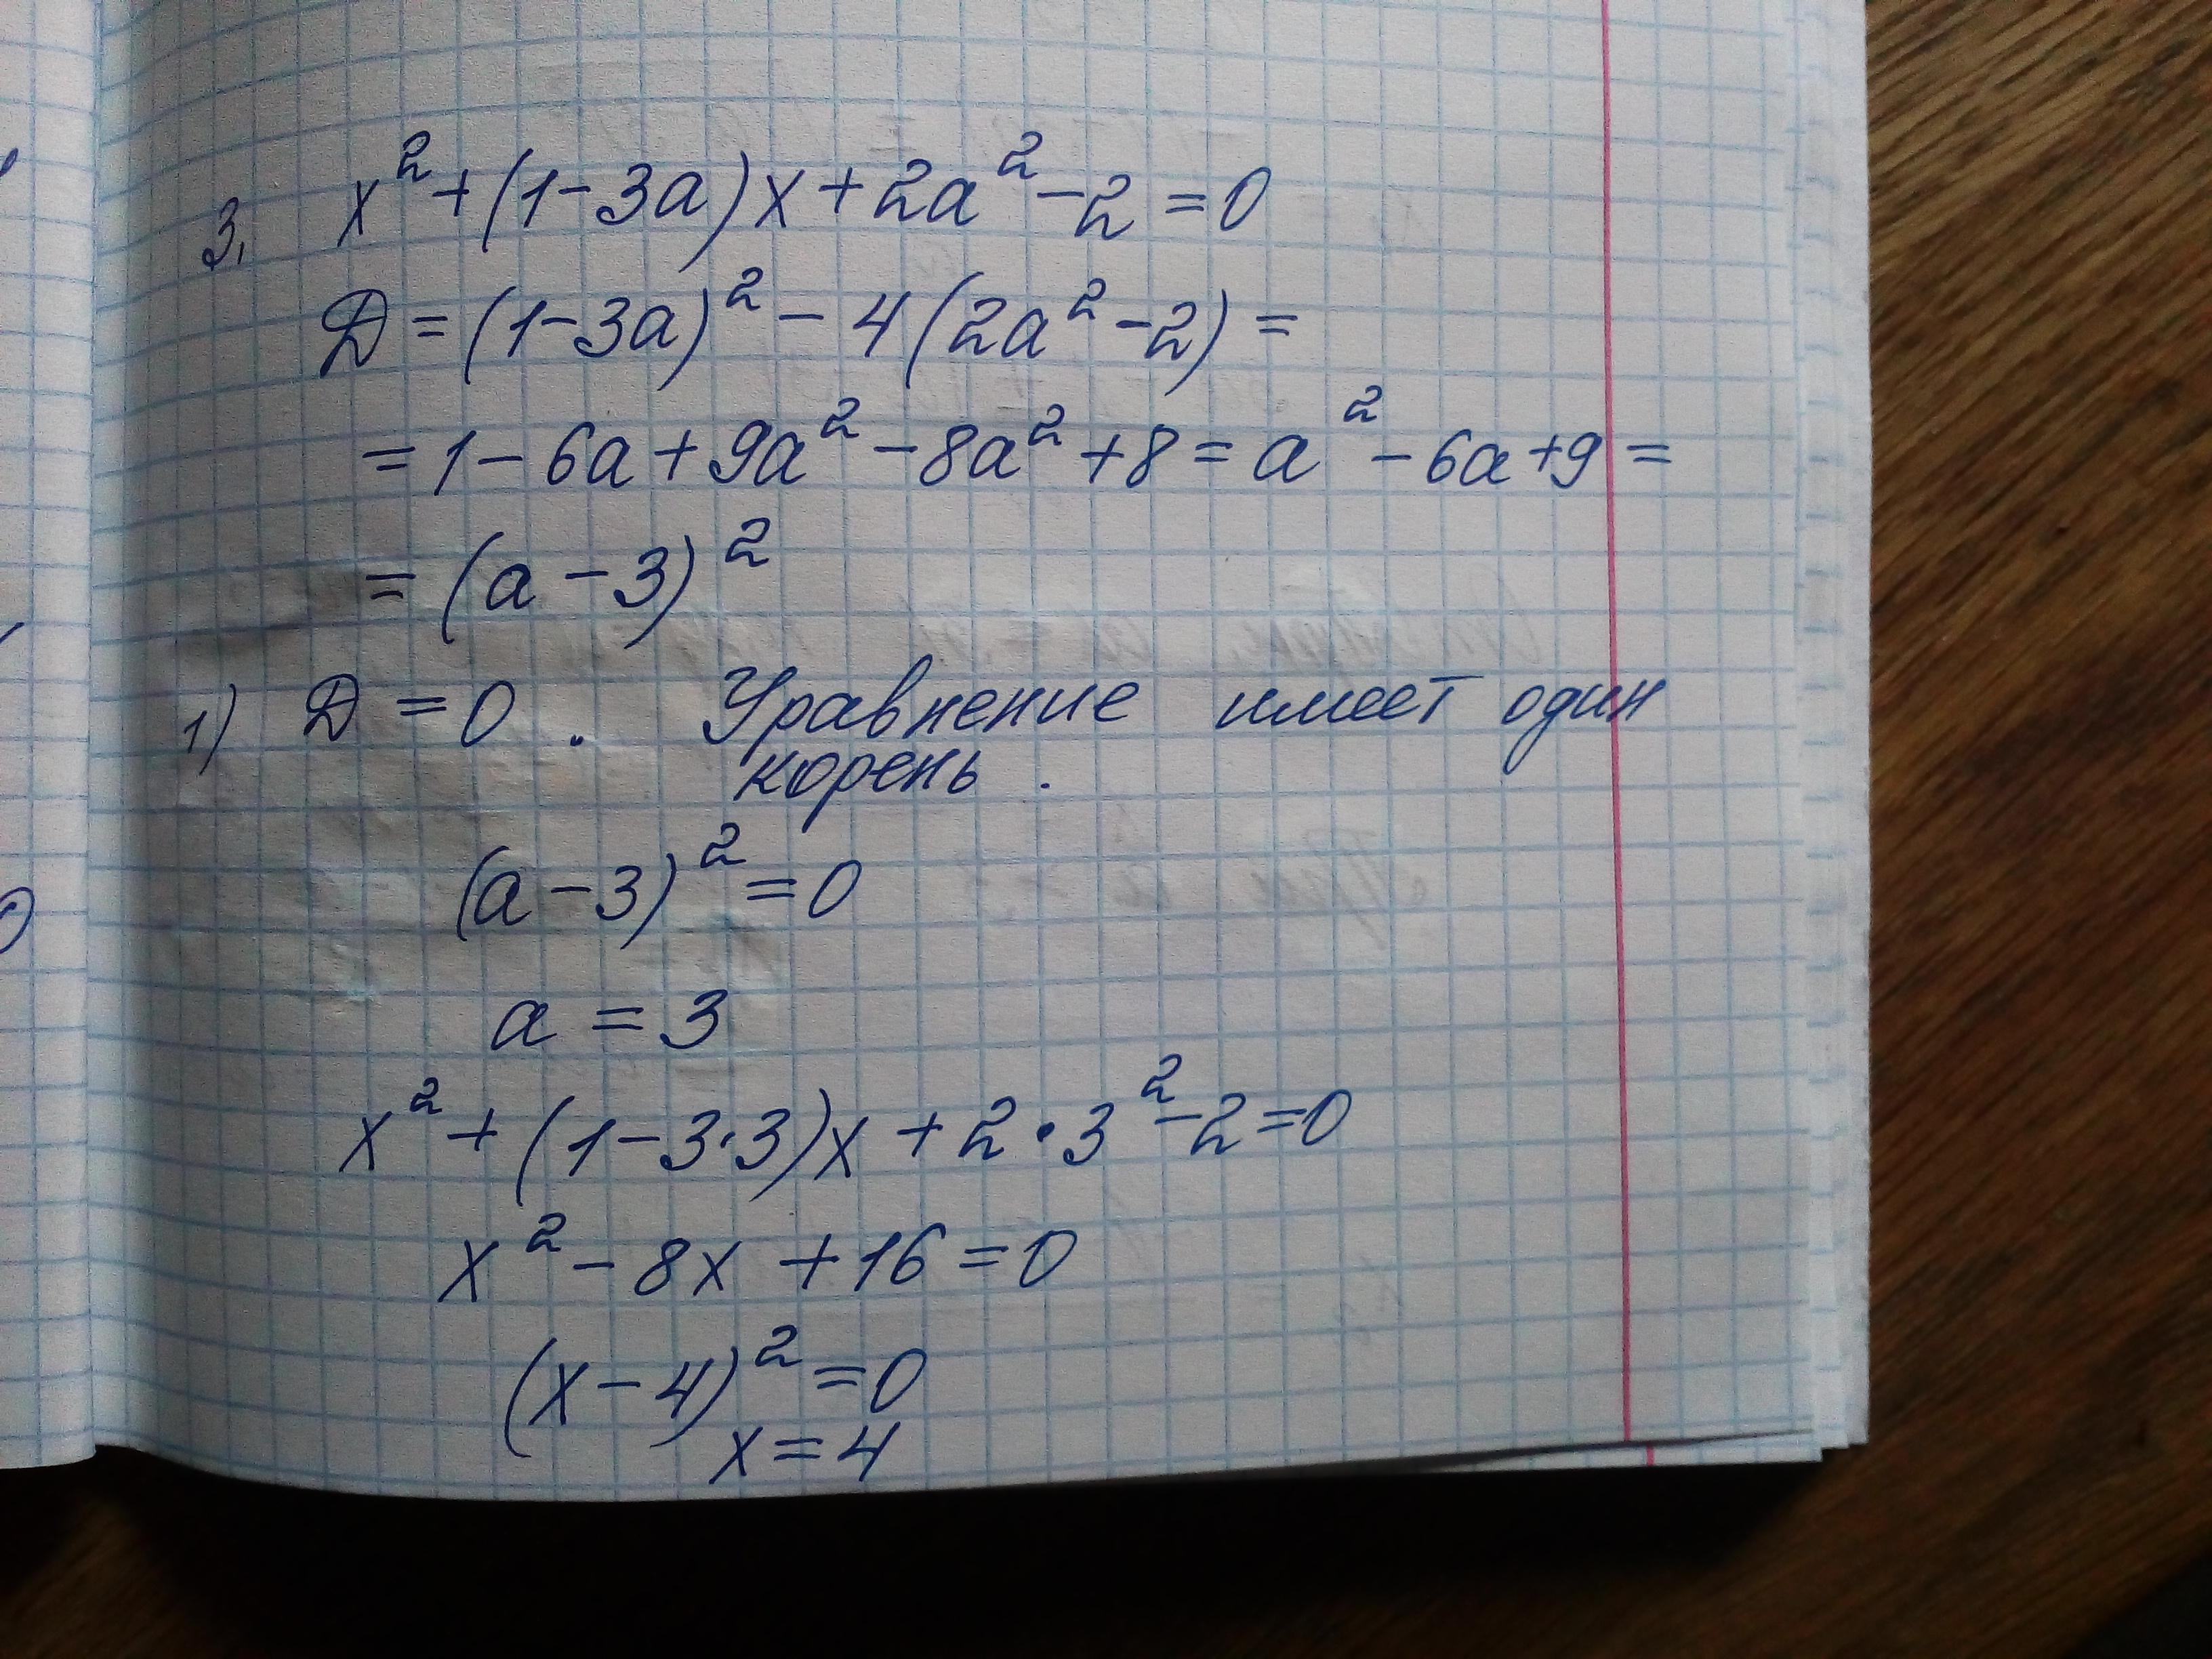 3. x² + (1 - 3a)x + 2a² - 2 = 0
D = (1 - 3a)² - 4(2a² - 2) =
= 1 - 6a + 9a² - 8a² + 8 = a² - 6a + 9 =
= (a - 3)²
1) D = 0 . Уравнение имеет один
корень .
(a - 3)² = 0
a = 3
x² + (1 - 3·3)x + 2·3² - 2 = 0
x² - 8x + 16 = 0
(x - 4)² = 0
x = 4